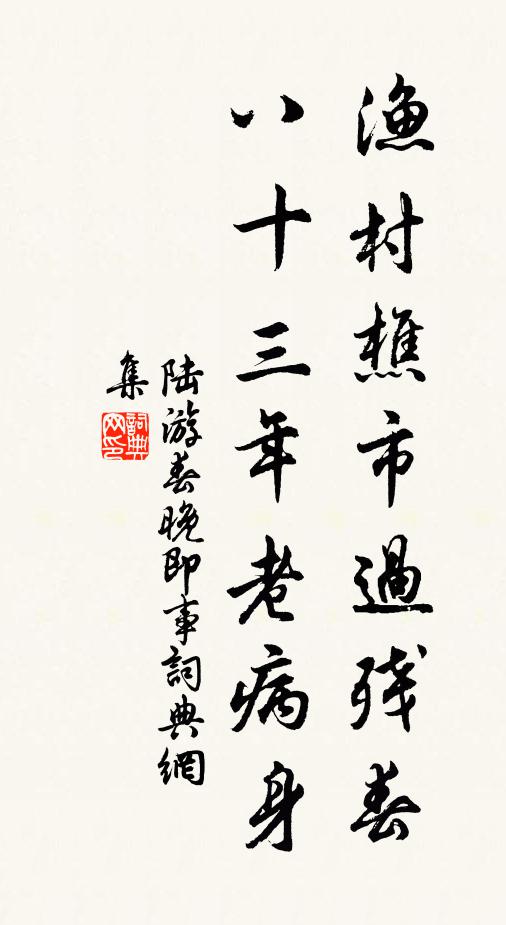 渔村樵市過残春
八十三年老病身
陆游春晚即事詞典網
集
詞典网印